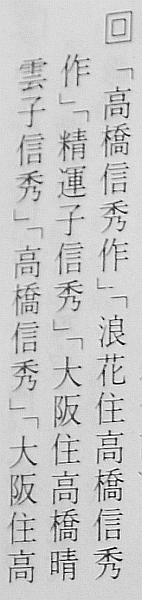 回「高橋信秀作」「浪花住高橋信秀
作」「精運子信秀」「大阪住高橋晴
雲子信秀」「高橋信秀」「大阪住高